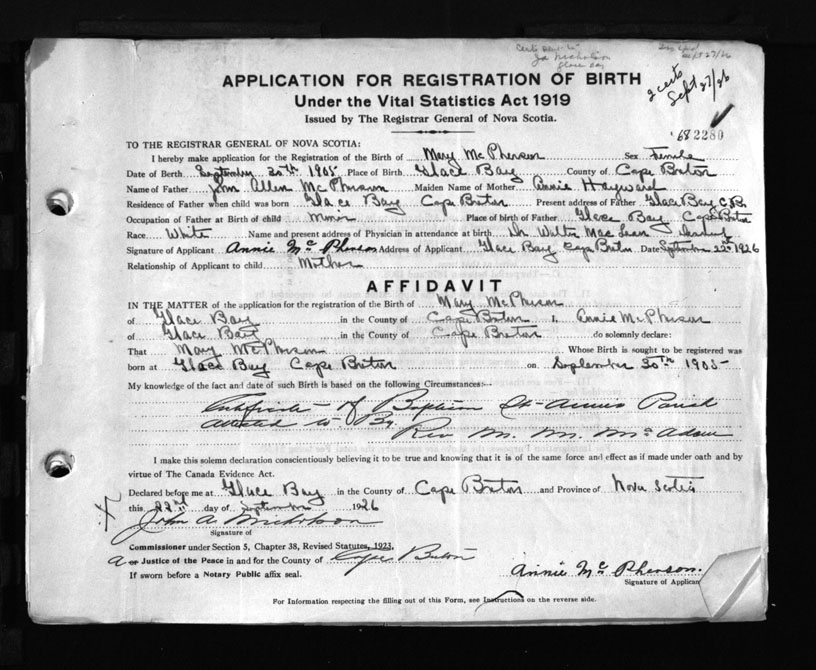 Certs
Ja Nicholson
Glace Bay
Sept 27/26
2 certs
Sept 27/26
APPLICATION FOR REGISTRATION OF BIRTH
Under the Vital Statistics Act 1919
Issued by The Registrar General of Nova Scotia.
68 2280
TO THE REGISTRAR GENERAL OF NOVA SCOTIA:
I hereby make application for the Registration of the Birth of Mary McPherson Sex Female
Date of Birth September 30th 1905 Place of Birth Glace Bay County of Cape Breton
Name of Father John Allen McPherson Maiden Name of Mother Annie Hayward
Residence of Father when child was born Glace Bay Cape Breton Present address of Father Glace Bay C.B.
Occupation of Father at Birth of child Miner Place of birth of Father Glace Bay Cape Breton
Race White Name and present address of Physician in attendance at birth Dr Walter MacLean
Signature of Applicant Annie McPherson Address of Applicant Glace Bay Cape Breton Date September 22nd 1926
Relationship of Applicant to child Mother
AFFIDAVIT
IN THE MATTER of the application for the registration of the Birth of Mary McPherson
of Glace Bay in the County of Cape Breton I, Annie McPherson
of Glace Bay in the County of Cape Breton do solemnly declare:
That Mary McPherson Whose Birth is sought to be registered was
born at Glace Bay Cape Breton on September 30th 1905
My knowledge of the fact and date of such Birth is based on the following Circumstances:-
Certificate of Baptism St. Annes Parish
attested to By
Rev M. M. McAdam
I make this solemn declaration conscientiously believing it to be true and knowing that it is of the same force and effect as if made under oath and by
virtue of The Canada Evidence Act.
Declared before me at Glace Bay in the County of Cape Breton and Province of Nova Scotia
this 22nd day of September 1926
John A. Nicholson
Signature of
Commissioner under Section 5, Chapter 38, Revised Statutes, 1923,
A or Justice of the Peace in and for the County of Cape Breton
If sworn before a Notary Public affix seal.
Annie McPherson.
Signature of Applicant
For Information respecting the filling out of this Form, see Instructions on the reverse side.